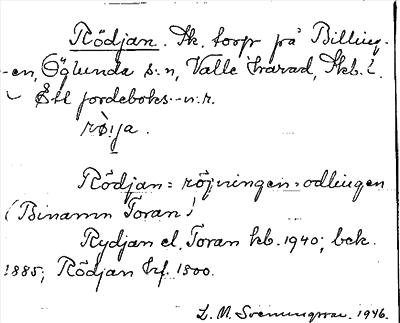 Rödjan. Sk. torp på Billing-
en, Öglunda s:n, Valle härad, Skb. l.
Ett jordeboks-n:r.
rö̀ja.
Rödjan = röjningen = odlingen
(Binamn Toran)
Rydjan el. Toran hb. 1940; bek.
1885; Rödjan hf. 1800.
L. M. Svenungsson. 1946.